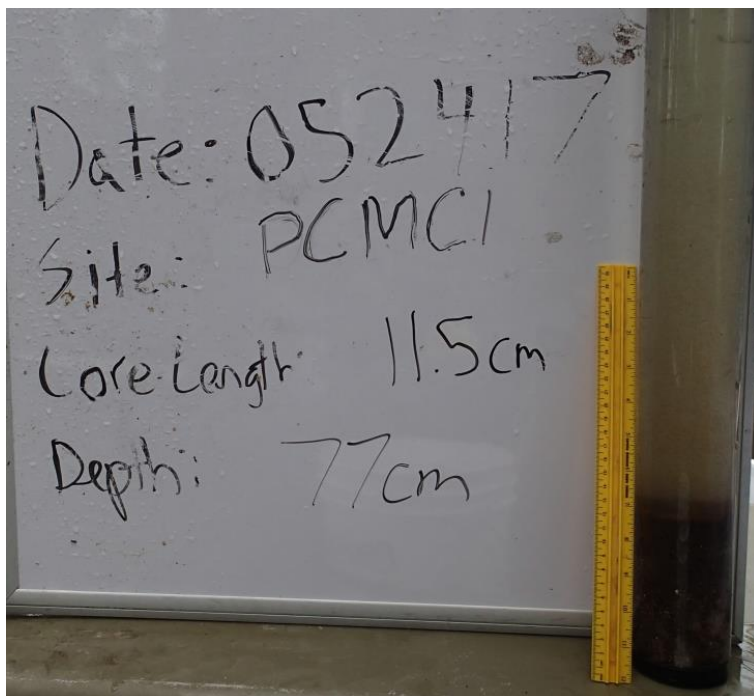 Date: 052417
Site: PCMC1
Core Length: 11.5cm
Depth: 77cm